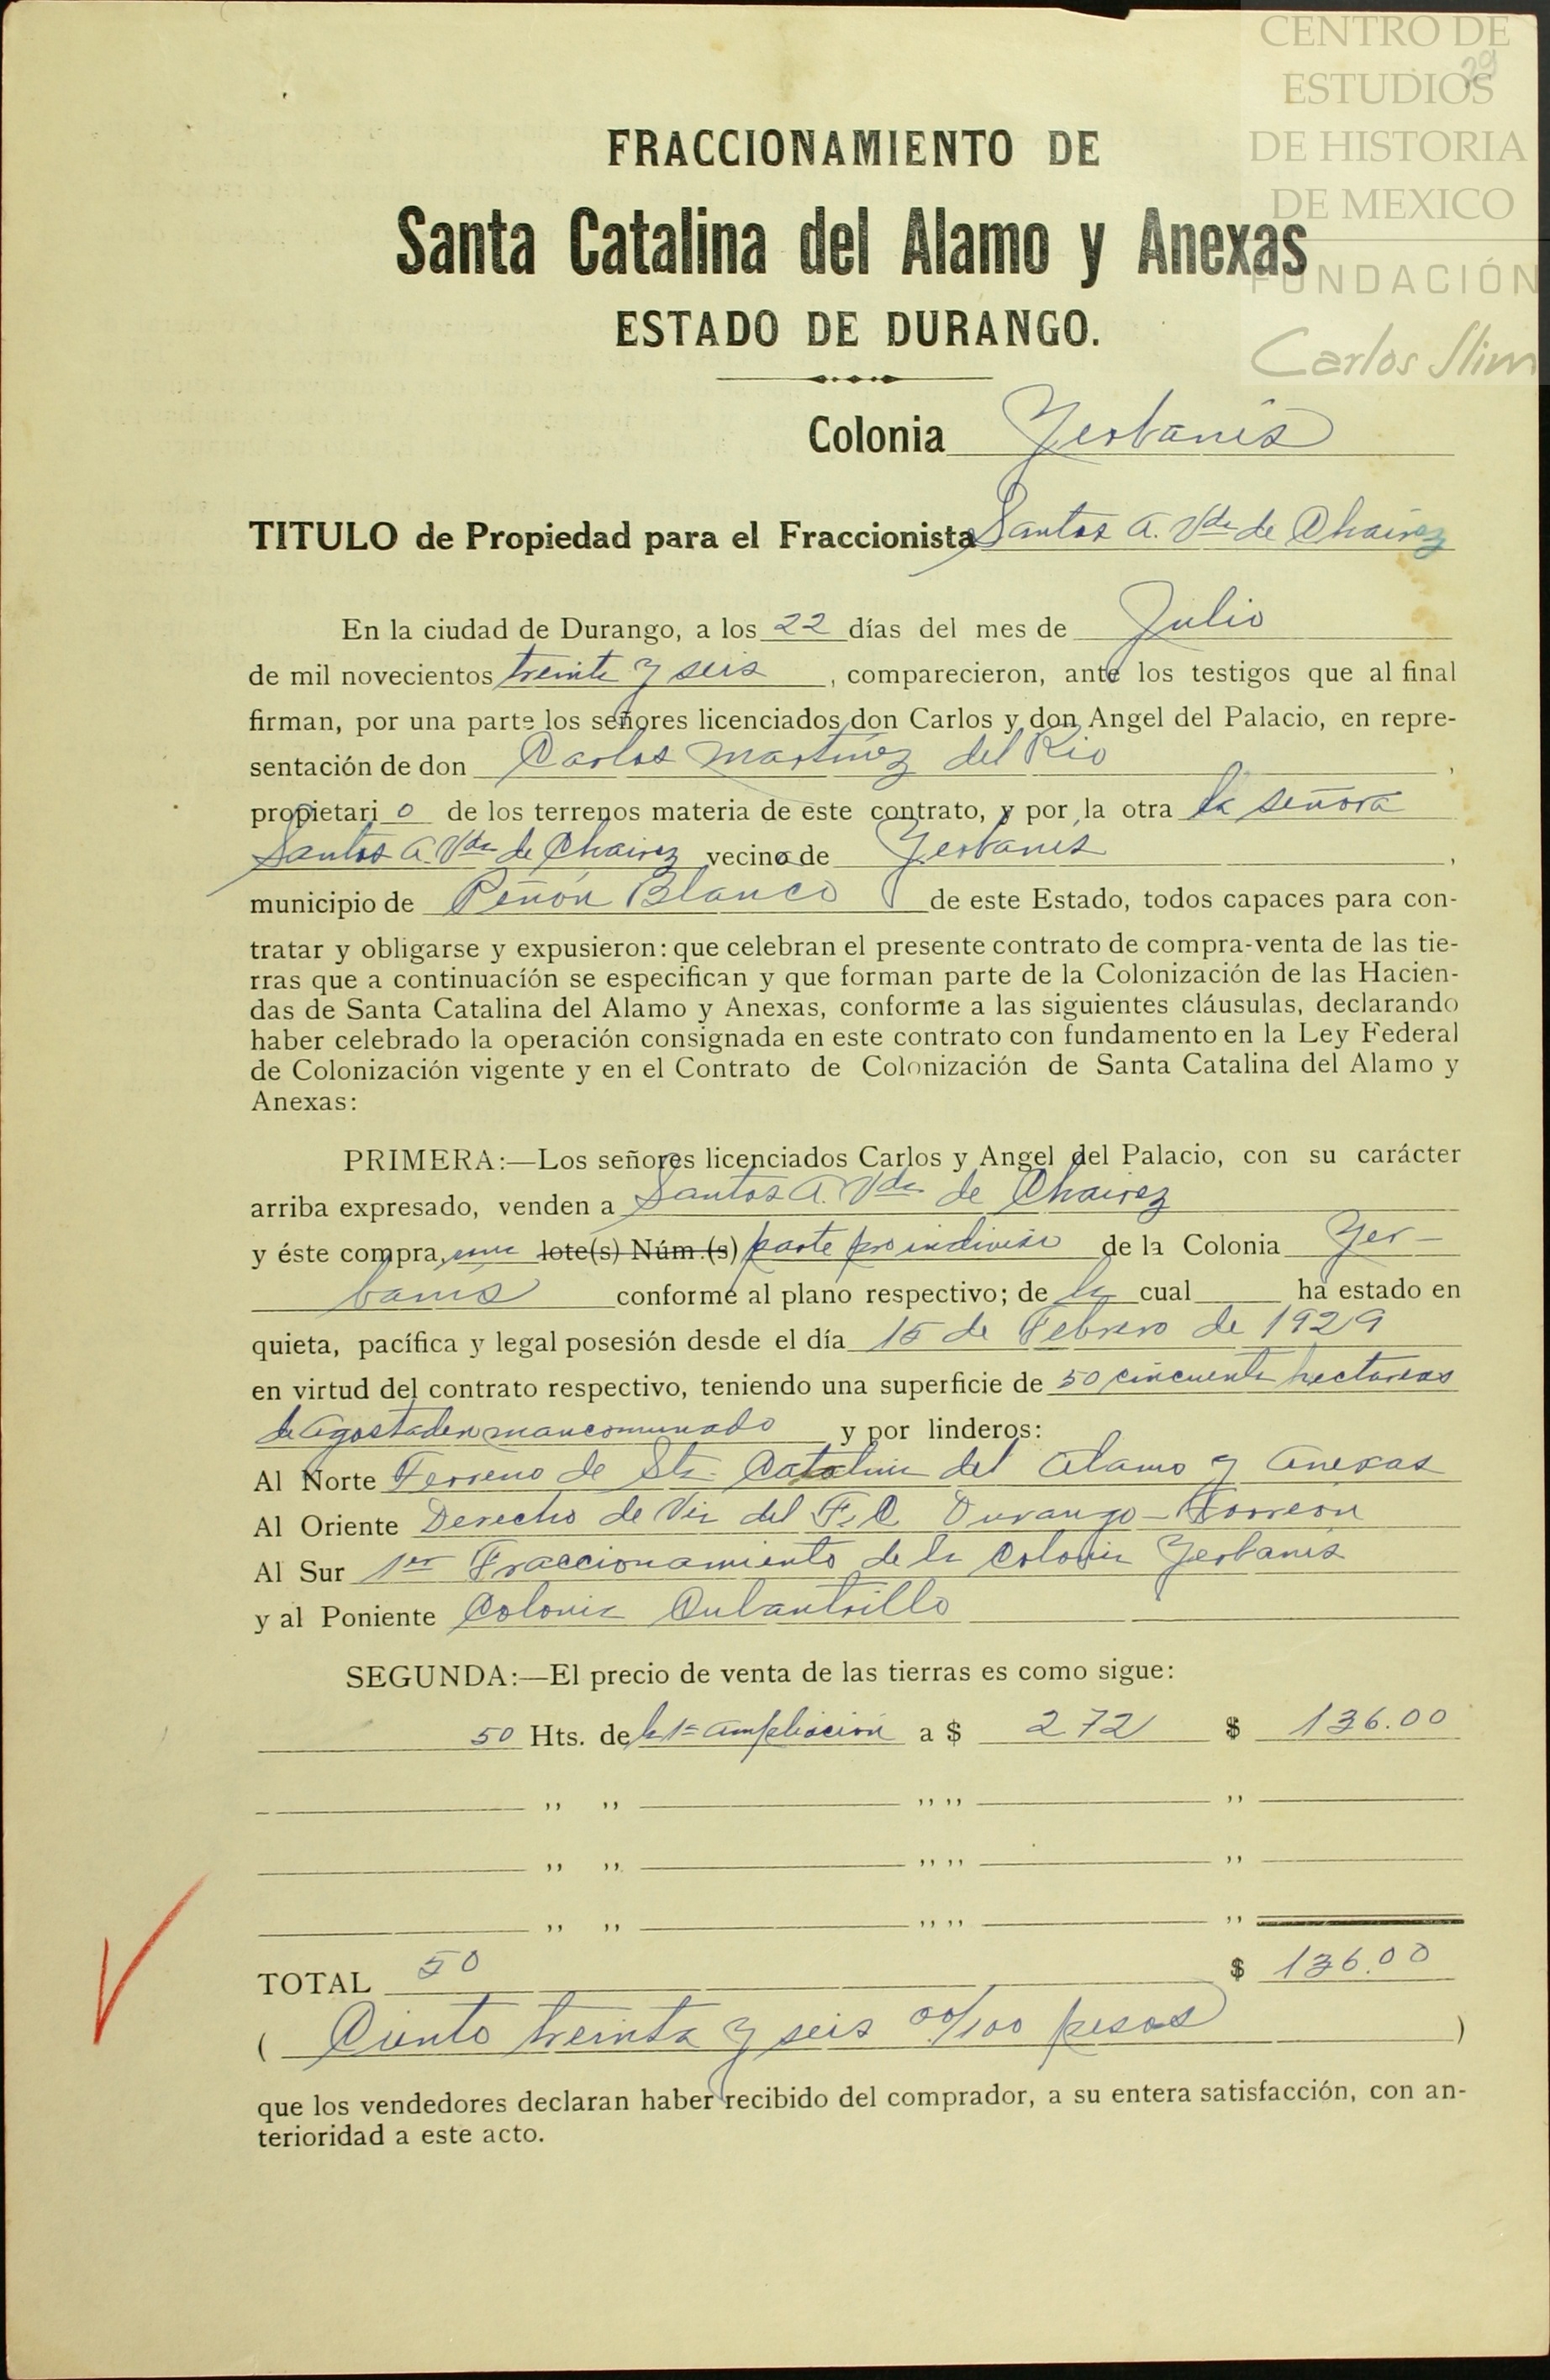 CENTRO DE
ESTUDIOS
DE HISTORIA
DE MEXICO
FUNDACIÓN
Carlos Slim
29
FRACCIONAMIENTO DE
Santa Catalina del Alamo y Anexas
ESTADO DE DURANGO.
Colonia Yerbanís
TITULO de Propiedad para el Fraccionista Santos A. Vda de Chairez
En la ciudad de Durango, a los 22 días del mes de Julio
de mil novecientos treinta y seis, comparecieron, ante los testigos que al final
firman, por una parte los señores licenciados don Carlos y don Angel del Palacio, en repre-
sentación de don Carlos Martínez del Rio,
propietario de los terrenos materia de este contrato, y por la otra la señora
Santos A. Vda de Chairez vecina de Yerbanís,
municipio de Peñón Blanco de este Estado, todos capaces para con-
tratar y obligarse y expusieron: que celebran el presente contrato de compra-venta de las tie-
rras que a continuación se especifican y que forman parte de la Colonización de las Hacien-
das de Santa Catalina del Alamo y Anexas, conforme a las siguientes cláusulas, declarando
haber celebrado la operación consignada en este contrato con fundamento en la Ley Federal
de Colonización vigente y en el Contrato de Colonización de Santa Catalina del Alamo y
Anexas:
PRIMERA:—Los señores licenciados Carlos y Angel del Palacio, con su carácter
arriba expresado, venden a Santos A. Vda de Chairez
y éste compra, una lote(s) Núm.(s) parte proindiviso de la Colonia Yer-
banís conforme al plano respectivo; de la cual ha estado en
quieta, pacífica y legal posesión desde el día 15 de Febrero de 1929
en virtud del contrato respectivo, teniendo una superficie de 50 cincuenta hectareas
de agostadero mancomunado y por linderos:
Al Norte Terreno de Sta. Catalina del Alamo y Anexas
Al Oriente Derecho de Via del F.C. Durango-Torreón
Al Sur 1er Fraccionamiento de la Colonia Yerbanís
y al Poniente Colonia Culantrillo
SEGUNDA:—El precio de venta de las tierras es como sigue:
50 Hts. de la 1a ampliación a $ 2 72 $ 136.00
,, ,, ,, ,, ,,
,, ,, ,, ,, ,,
,, ,, ,, ,, ,,
TOTAL 50 $ 136.00
( Ciento treinta y seis 00/100 pesos )
que los vendedores declaran haber recibido del comprador, a su entera satisfacción, con an-
terioridad a este acto.